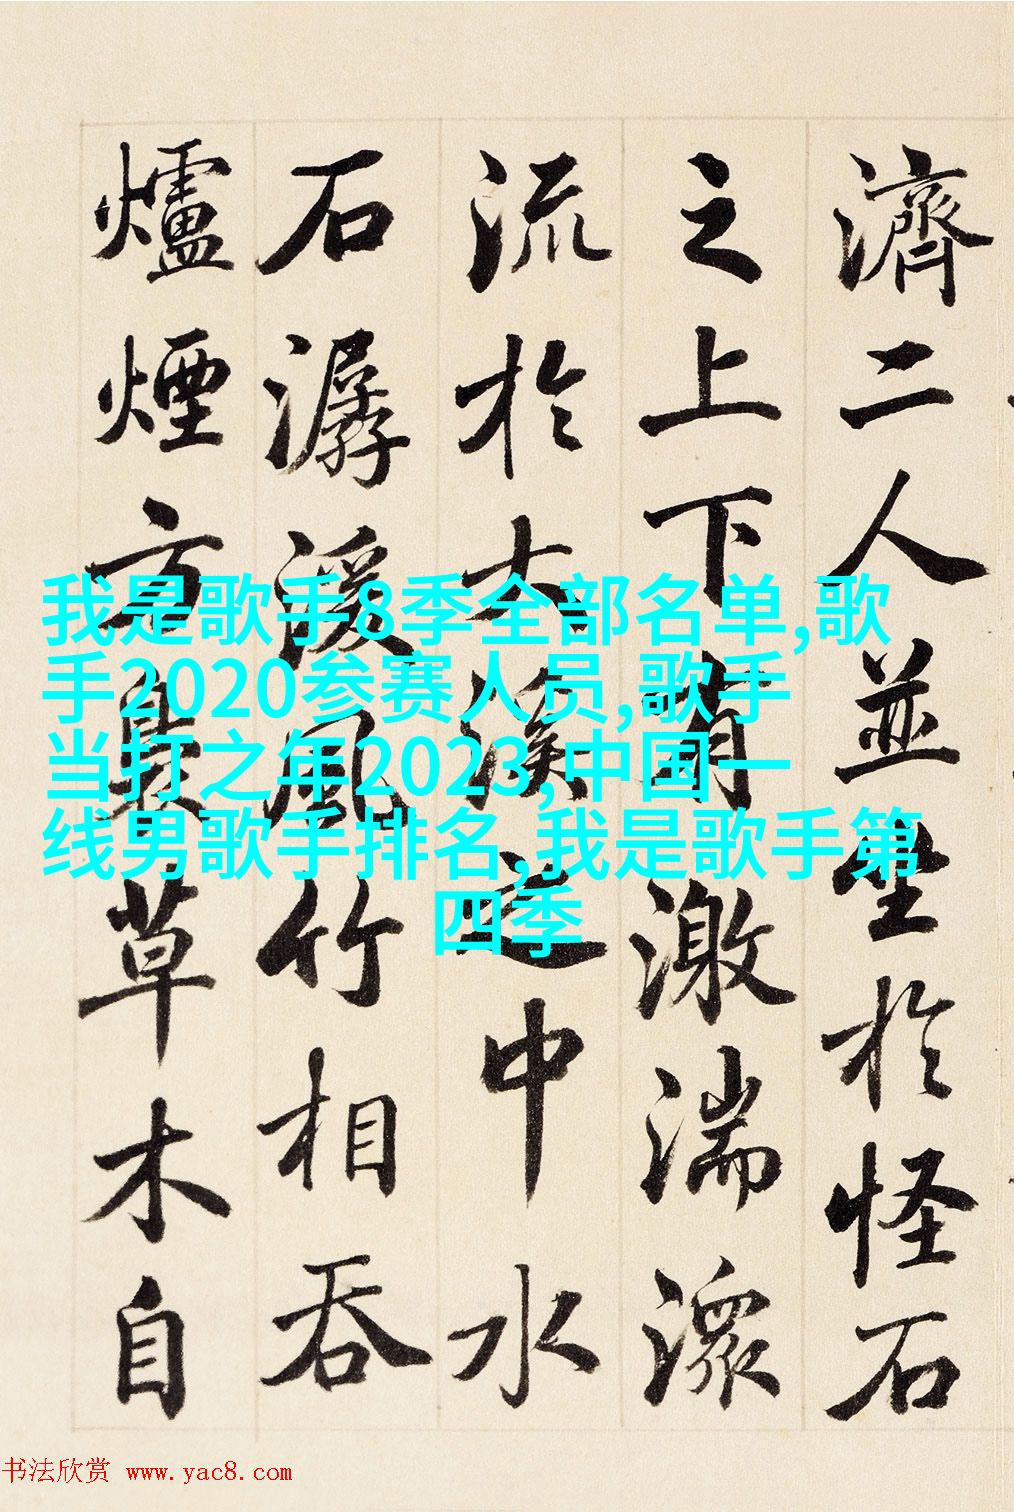 濟二人並坐於怪石
之上下有激湍潨
流於大溪之中水
石潺湲風竹相吞
爐煙方裊草木自
我是歌手8季全部名单,歌
手2020参赛人员,歌手
当打之年2023,中国一
线男歌手排名,我是歌手第
四季
书法欣赏 www.yac8.com